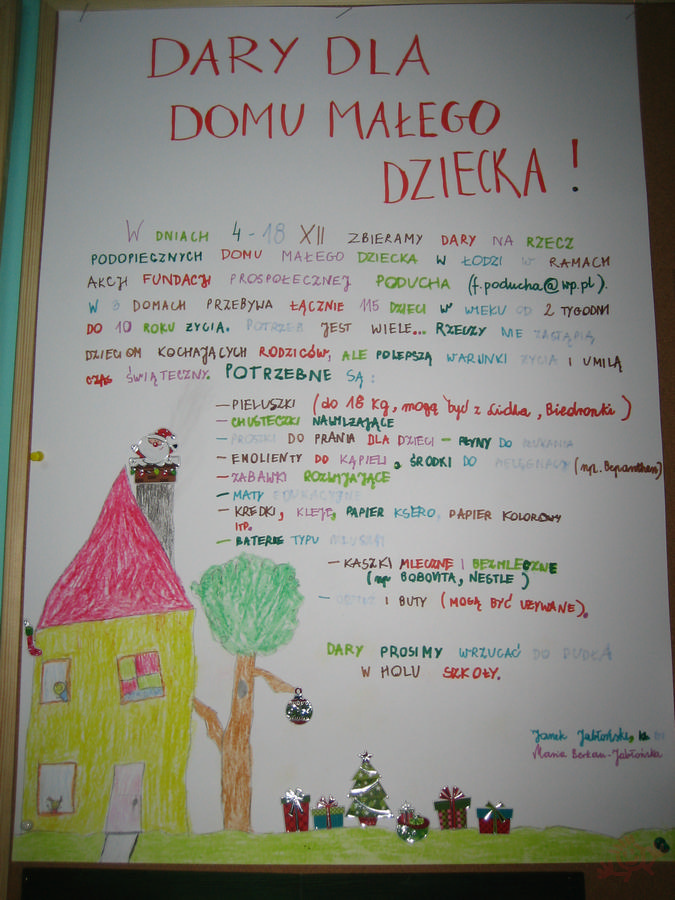 DARY DLA
DOMU MAŁEGO
DZIECKA !
W DNIACH 4-18 XII ZBIERAMY DARY NA RZECZ
PODOPIECZNYCH DOMU MAŁEGO DZIECKA W ŁODZI W RAMACH
AKCJI FUNDACJI PROSPOŁECZNEJ PODUCHA (f.poducha@wp.pl).
W 3 DOMACH PRZEBYWA ŁĄCZNIE 115 DZIECI W WIEKU OD 2 TYGODNI
DO 10 ROKU ŻYCIA. POTRZEB JEST WIELE... RZECZY NIE ZASTĄPIĄ
DZIECIOM KOCHAJĄCYCH RODZICÓW, ALE POLEPSZĄ WARUNKI ŻYCIA I UMILĄ
CZAS ŚWIĄTECZNY. POTRZEBNE SĄ:
– PIELUSZKI (do 18 kg, mogą być z Lidla, Biedronki)
– CHUSTECZKI NAWILŻAJĄCE
– PROSZKI DO PRANIA DLA DZIECI – PŁYNY DO PŁUKANIA
– EMOLIENTY DO KĄPIELI, ŚRODKI DO PIELĘGNACJI (np. Bepanthen)
– ZABAWKI ROZWIJAJĄCE
– MATY EDUKACYJNE
– KREDKI, KLEJE, PAPIER KSERO, PAPIER KOLOROWY
ITP.
– BATERIE TYPU
– KASZKI MLECZNE I BEZMLECZNE
(np BOBOVITA, NESTLE)
– I BUTY (MOGĄ BYĆ UŻYWANE).
DARY PROSIMY WRZUCAĆ DO PUDŁA
W HOLU SZKOŁY.
Janek Jabłoński,
Maria Berkan-Jabłońska